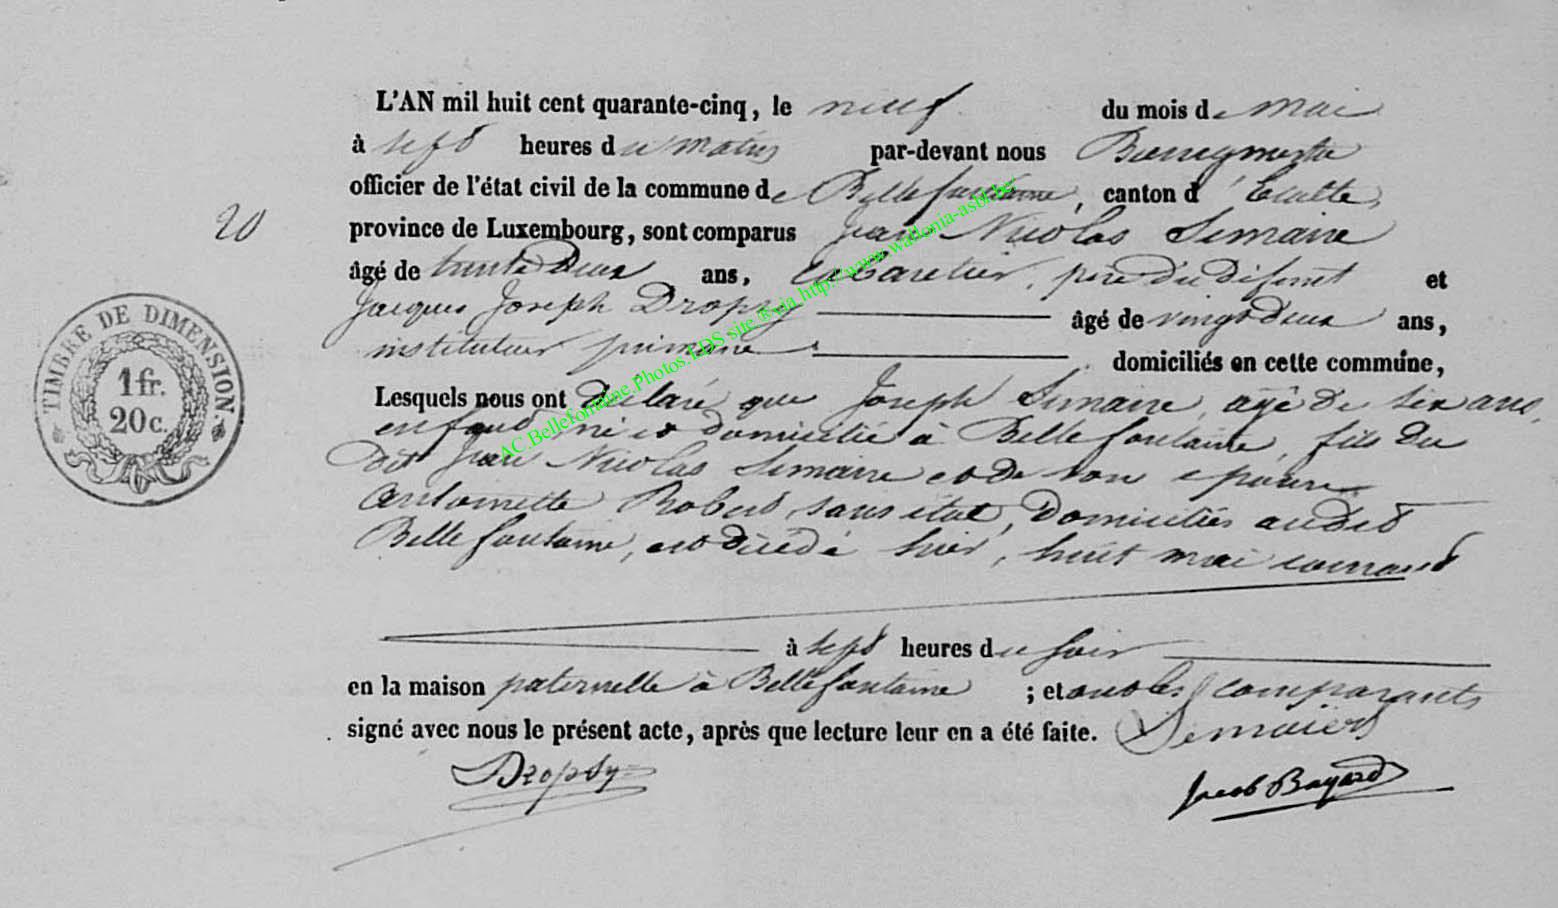 L'AN mil huit cent quarante-cinq, le neuf du mois de Mai
à sept heures du matin par-devant nous Bourgmestre
officier de l'état civil de la commune de Bellefontaine, canton d'Etalle,
20
province de Luxembourg, sont comparus Jean Nicolas Simaire
âgé de trente Deux ans, Cabaretier, père du défunt et
Jacques Joseph Dropsy âgé de vingt deux ans,
instituteur primaire domiciliés en cette commune,
TIMBRE DE DIMENSION
1 fr.
20 c.
Lesquels nous ont déclaré que Joseph Simaire, agé de six ans,
enfant, né et domicilié à Bellefontaine, fils du
dit Jean Nicolas Simaire et de son epouse
Antoinette Robert, sans état, Domiciliés audit
Bellefontaine, est décédé hier, huit mai courant
à sept heures du soir
en la maison paternelle à Bellefontaine ; et ont les comparants
signé avec nous le présent acte, après que lecture leur en a été faite. Simaire
Dropsy Jacob Bayard
AC Bellefontaine.Photos.LDS site ® via http://www.wallonia-asbl.be/